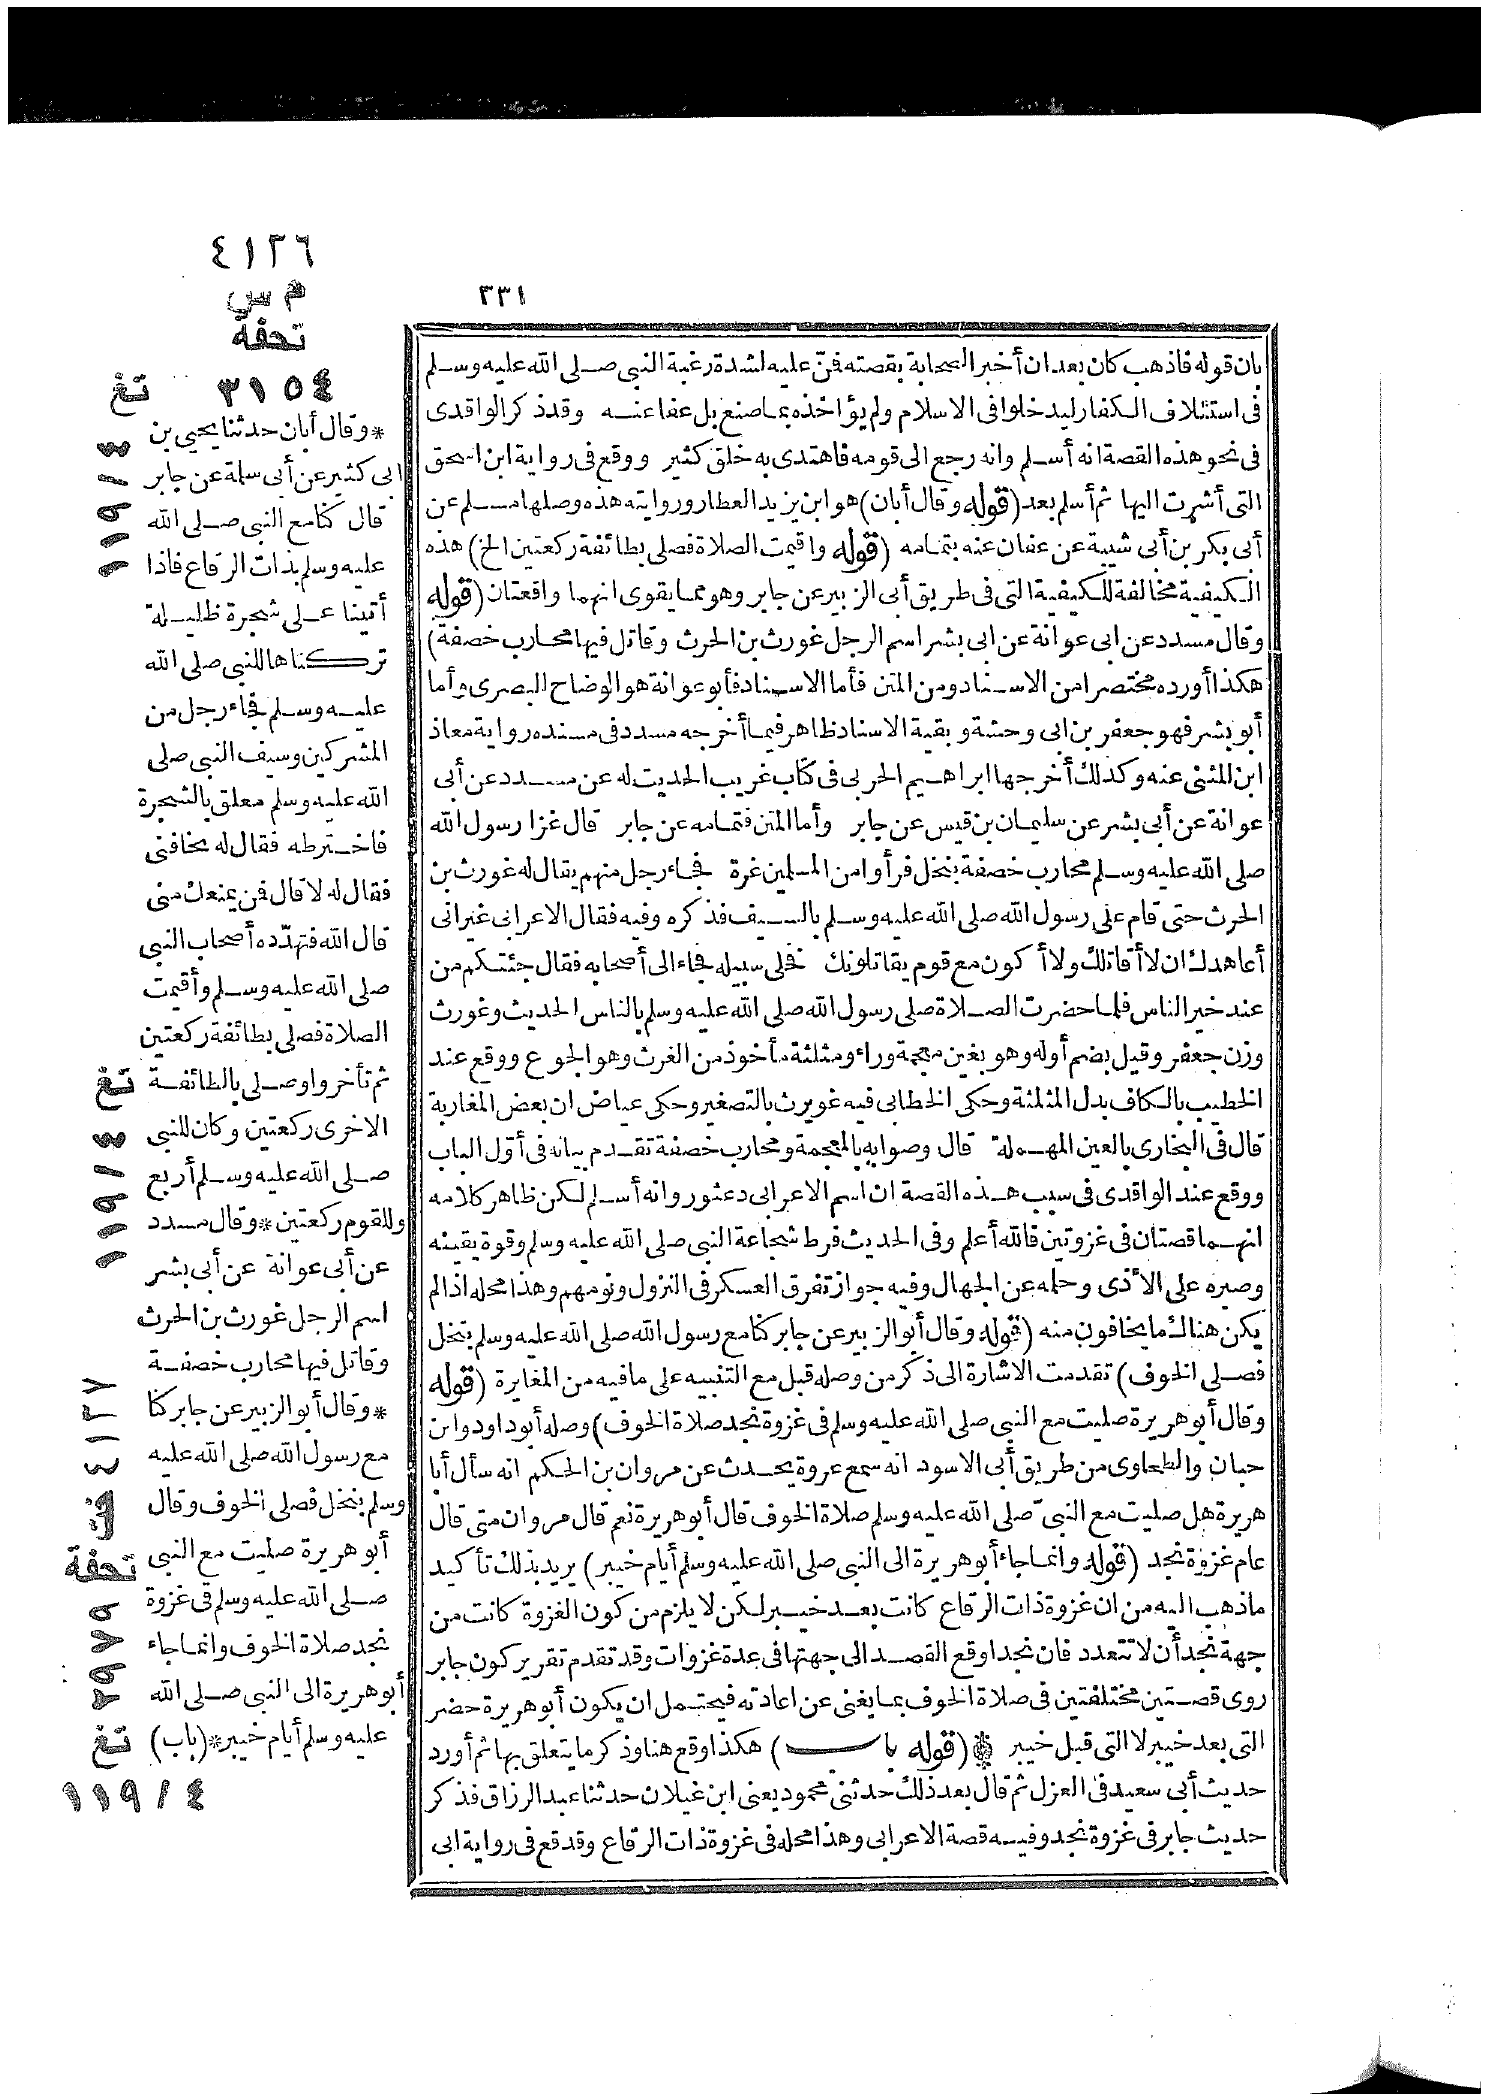 ٣٣١
بان قوله فاذهب كان بعد ان أخبر الصحابة بقصته فمنّ عليه لشدة رغبة النبي صلى الله عليه وسلم
فى استئلاف الكفار ليدخلوا فى الاسلام ولم يؤاخذه بما صنع بل عفا عنه وقد ذكر الواقدى
فى نحو هذه القصة انه أسلم وانه رجع الى قومه فاهتدى به خلق كثير ووقع فى رواية ابن اسحق
التى أشرت اليها ثم أسلم بعد (قوله وقال أبان) هو ابن يزيد العطار وروايته هذه وصلها مسلم عن
أبى بكر بن أبى شيبة عن عفان عنه بتمامه (قوله واقيمت الصلاة فصلى بطائفة ركعتين الخ) هذه
الكيفية مخالفة للكيفية التى فى طريق أبى الزبير عن جابر وهو مما يقوى انهما واقعتان (قوله
وقال مسدد عن ابى عوانة عن ابى بشر اسم الرجل غورث بن الحرث وقاتل فيها محارب خصفة)
هكذا أورده مختصرا من الاسناد ومن المتن فأما الاسناد فأبو عوانة هو الوضاح البصرى وأما
أبو بشر فهو جعفر بن ابى وحشة وبقية الاسناد ظاهر فيما أخرجه مسدد فى مسنده رواية معاذ
ابن المثنى عنه وكذلك أخرجها ابراهيم الحربى فى كتاب غريب الحديث له عن مسدد عن أبى
عوانة عن أبى بشر عن سليمان بن قيس عن جابر وأما المتن فتمامه عن جابر قال غزا رسول الله
صلى الله عليه وسلم محارب خصفة بنخل فرأوا من المسلمين غرة فجاء رجل منهم يقال له غورث بن
الحرث حتى قام على رسول الله صلى الله عليه وسلم بالسيف فذكره وفيه فقال الاعرابى غير انى
أعاهدك ان لا أقاتلك ولا أكون مع قوم يقاتلونك فخلى سبيله فجاء الى أصحابه فقال جئتكم من
عند خير الناس فلما حضرت الصلاة صلى رسول الله صلى الله عليه وسلم بالناس الحديث وغورث
وزن جعفر وقيل بضم أوله وهو بغين معجمة وراء ومثلثة مأخوذ من الغرث وهو الجوع ووقع عند
الخطيب بالكاف بدل المثلثة وحكى الخطابى فيه غويرث بالتصغير وحكى عياض ان بعض المغاربة
قال فى البخارى بالعين المهملة قال وصوابه بالمعجمة ومحارب خصفة تقدم بيانه فى أوّل الباب
ووقع عند الواقدى فى سبب هذه القصة ان اسم الاعرابى دعثور وانه أسلم لكن ظاهر كلامه
انهما قصتان فى غزوتين فالله أعلم وفى الحديث فرط شجاعة النبى صلى الله عليه وسلم وقوة يقينه
وصبره على الأذى وحلمه عن الجهال وفيه جواز تفرق العسكر فى النزول ونومهم وهذا محله اذا لم
يكن هناك ما يخافون منه (قوله وقال أبو الزبير عن جابر كنا مع رسول الله صلى الله عليه وسلم بنخل
فصلى الخوف) تقدمت الاشارة الى ذكر من وصله قبل مع التنبيه على ما فيه من المغايرة (قوله
وقال أبو هريرة صليت مع النبى صلى الله عليه وسلم فى غزوة نجد صلاة الخوف) وصله أبو داود وابن
حبان والطحاوى من طريق أبى الاسود انه سمع عروة يحدث عن مروان بن الحكم انه سأل أبا
هريرة هل صليت مع النبىّ صلى الله عليه وسلم صلاة الخوف قال أبو هريرة نعم قال مروان متى قال
عام غزوة نجد (قوله وانما جاء أبو هريرة الى النبى صلى الله عليه وسلم أيام خيبر) يريد بذلك تأكيد
ما ذهب اليه من ان غزوة ذات الرقاع كانت بعد خيبر لكن لا يلزم من كون الغزوة كانت من
جهة نجد أن لا تتعدد فان نجدا وقع القصد الى جهتها فى عدة غزوات وقد تقدم تقرير كون جابر
روى قصتين مختلفتين فى صلاة الخوف بما يغنى عن اعادته فيحتمل ان يكون أبو هريرة حضر
التى بعد خيبر لا التى قبل خيبر (قوله باب) هكذا وقع هنا وذكر ما يتعلق بها ثم أورد
حديث أبى سعيد فى العزل ثم قال بعد ذلك حدثنى محمود يعنى ابن غيلان حدثنا عبد الرزاق فذكر
حديث جابر فى غزوة نجد وفيه قصة الاعرابى وهذا محله فى غزوة ذات الرقاع وقد قع فى رواية ابى
٤١٣٦
م س
تحفة
٣١٥٤
تغ
*وقال أبان حدثنا يحيى بن
ابى كثير عن أبى سلمة عن جابر
قال كنا مع النبى صلى الله
عليه وسلم بذات الرقاع فاذا
أتينا على شجرة ظليلة
تركناها للنبى صلى الله
عليه وسلم فجاء رجل من
المشركين وسيف النبى صلى
الله عليه وسلم معلق بالشجرة
فاخترطه فقال له تخافنى
فقال له لا قال فمن يمنعك منى
قال الله فتهدّده أصحاب النبى
صلى الله عليه وسلم وأقيمت
الصلاة فصلى بطائفة ركعتين
ثم تأخروا وصلى بالطائفة
الاخرى ركعتين وكان للنبى
صلى الله عليه وسلم أربع
وللقوم ركعتين *وقال مسدد
عن أبى عوانة عن أبى بشر
اسم الرجل غورث بن الحرث
وقاتل فيها محارب خصفة
*وقال أبو الزبير عن جابر كنا
مع رسول الله صلى الله عليه
وسلم بنخل فصلى الخوف وقال
أبو هريرة صليت مع النبى
صلى الله عليه وسلم فى غزوة
نجد صلاة الخوف وانما جاء
أبو هريرة الى النبى صلى الله
عليه وسلم أيام خيبر *(باب)
تغ
٤١٣٧
تحفة
تغ
١١٩/٤